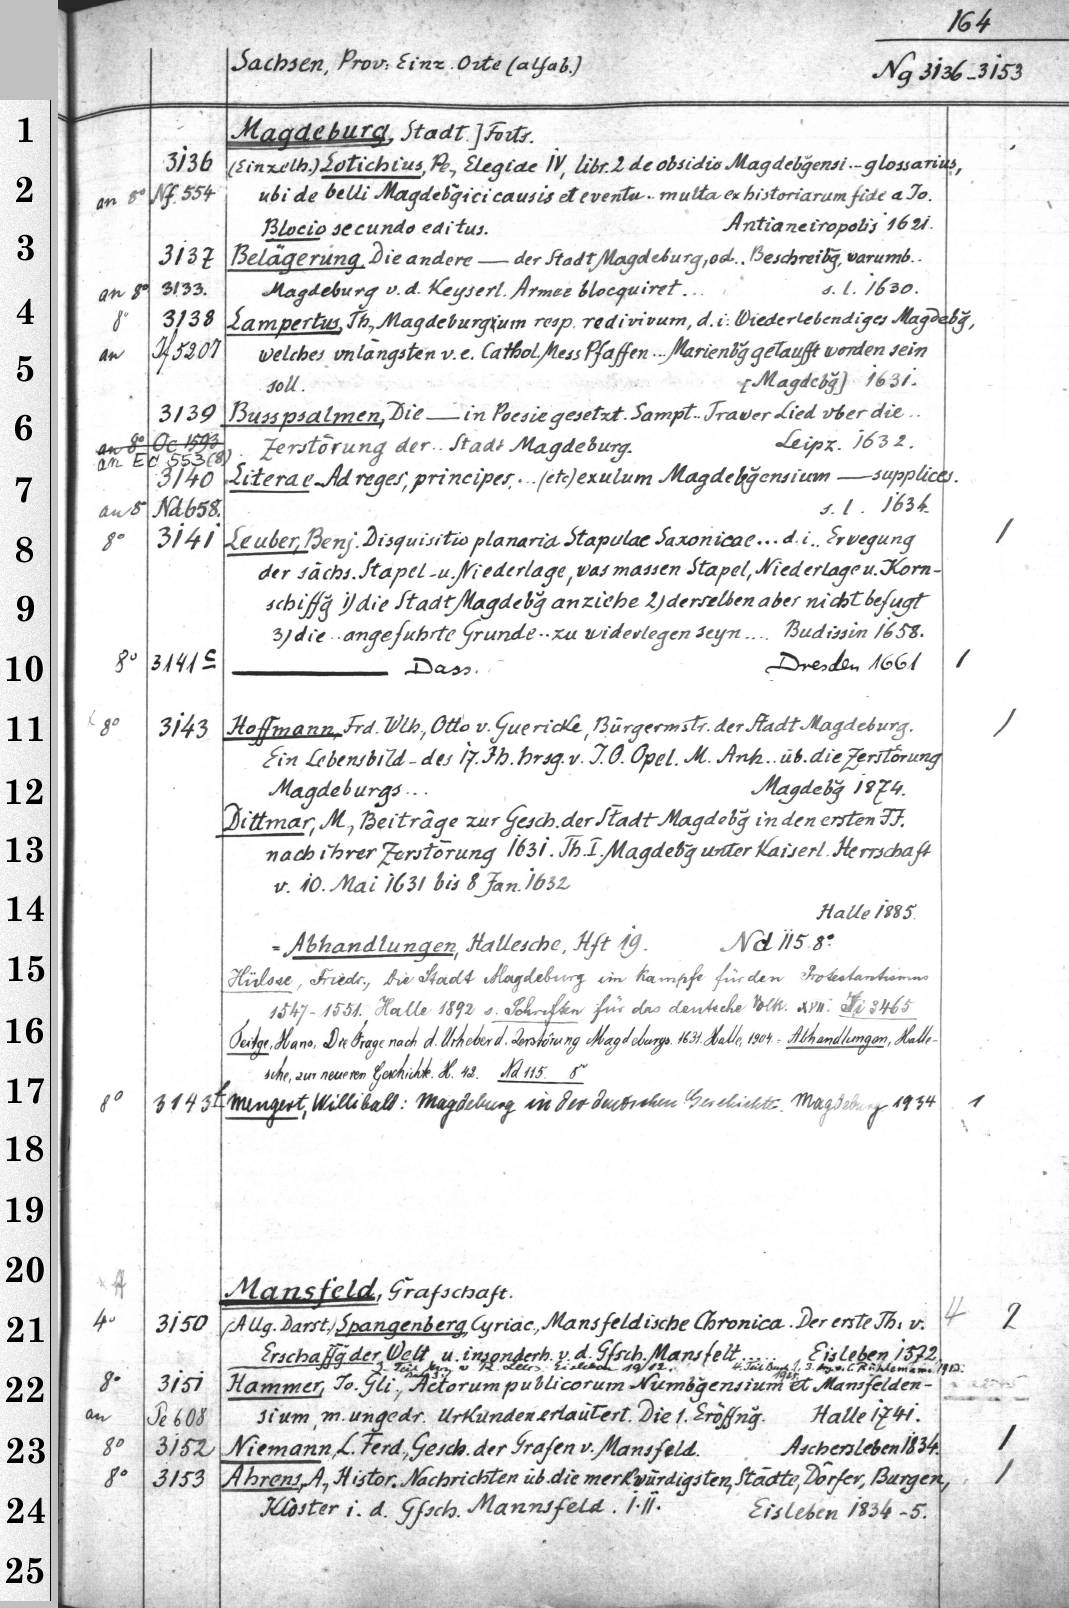 164
Sachsen, Prov: Einz. Orte (alfab.)
Ng 3136-3153
1
Magdeburg, Stadt.] Forts.
3136 (Einzelh.) Lotichius, Pe, Elegiae IV, libr. 2 de obsidio Magdebg̃ensi .. glossarius,
2
an 8° Nf. 554 ubi de belli Magdebg̃ici causis et eventu .. multa ex historiarum fide a Jo.
Blocio secundo editus. Antianeiropolis 1621.
3
3137 Belägerung, Die andere — der Stadt Magdeburg, od.. Beschreibg̃, warumb..
an 8° 3133. Magdeburg v. d. Keyserl. Armee blocquiret ... s. l. 1630.
4
8° 3138 Lampertus, Th., Magdeburgium resp. redivivum, d. i. Wiederlebendiges Magdebg̃,
an If 5207 welches vnlängsten v. e. Cathol. Mess Pfaffen ... Marienbg̃ getaufft worden sein
5
soll. [Magdebg̃] 1631.
3139 Busspsalmen, Die — in Poesie gesetzt. Sampt .. Trawer Lied vber die ..
6
an 8° Oc 1593 Zerstörung der .. Stadt Magdeburg. Leipz. 1632.
an Ec 553 (8)
3140 Literae Ad reges, principes, ... (etc) exulum Magdebg̃ensium — supplices.
7
an 8 Nd 658. s. l. 1634.
8° 3141 Leuber, Benj. Disquisitio planaria Stapulae Saxonicae ... d. i.. Erwegung 1
8
der sächs. Stapel- u. Niederlage, was massen Stapel, Niederlage u. Korn-
schiffg̃ 1) die Stadt Magdebg̃ anziehe 2) derselben aber nicht befugt
9
3) die .. angefuhrte Grunde .. zu widerlegen seyn .... Budissin 1658.
10
8° 3141 c ——— Dass. Dresden 1661 1
11
8° 3143 Hoffmann, Frd. Wlh., Otto v. Guericke, Bürgermstr. der Stadt Magdeburg. 1
Ein Lebensbild - des 17. Jh. hrsg. v. J. O. Opel. M. Anh .. üb. die Zerstörung
12
Magdeburgs ... Magdebg̃ 1874.
Dittmar, M., Beiträge zur Gesch. der Stadt Magdebg̃ in den ersten JJ.
13
nach ihrer Zerstörung 1631. Th. I. Magdebg̃ unter Kaiserl. Herrschaft
v. 10. Mai 1631 bis 8 Jan. 1632
14
Halle 1885.
= Abhandlungen, Hallesche, Hft 19. Nd 115. 8°
15
Hülsse, Friedr., Die Stadt Magdeburg im Kampfe für den Protestantismus
1547-1551. Halle 1892 s. Schriften für das deutsche Volk. XVII. 3465
16
Teitge, Hans, Die Frage nach d. Urheber d. Zerstörung Magdeburgs. 1631. Halle, 1904 = Abhandlungen, Halle-
sche, zur neueren Geschichte. H. 42. Nd 115 8°
17
8° 3143 f Mengert, Willibald: Magdeburg in der deutschen Geschichte. Magdeburg 1934 1
18
19
20
Mansfeld, Grafschaft.
21
4° 3150 (Allg. Darst.) Spangenberg, Cyriac., Mansfeldische Chronica. Der erste Th. v. 4 2
Erschaffg̃ der Welt u. insonderh. v. d. Gfsch. Mansfelt .... Eisleben 1572.
3. Teil hrsg. v. R. Leers. Eisleben 1912. 4. Teil Buch 1, 3. hrsg. v. C. Rühlemann. 1913.
22
8° 3151 Hammer, Jo. Gli., Actorum publicorum Numbg̃ensium et Mansfelden-
an Pe 608 sium, m. ungedr. Urkunden erläutert. Die 1. Eröffng̃. Halle 1741.
23
8° 3152 Niemann, L. Ferd., Gesch. der Grafen v. Mansfeld. Aschersleben 1834. 1
8° 3153 Ahrens, A., Histor. Nachrichten üb. die merkwürdigsten Städte, Dörfer, Burgen, 1
24
Klöster i. d. Gfsch. Mannsfeld. I. II. Eisleben 1834-5.
25